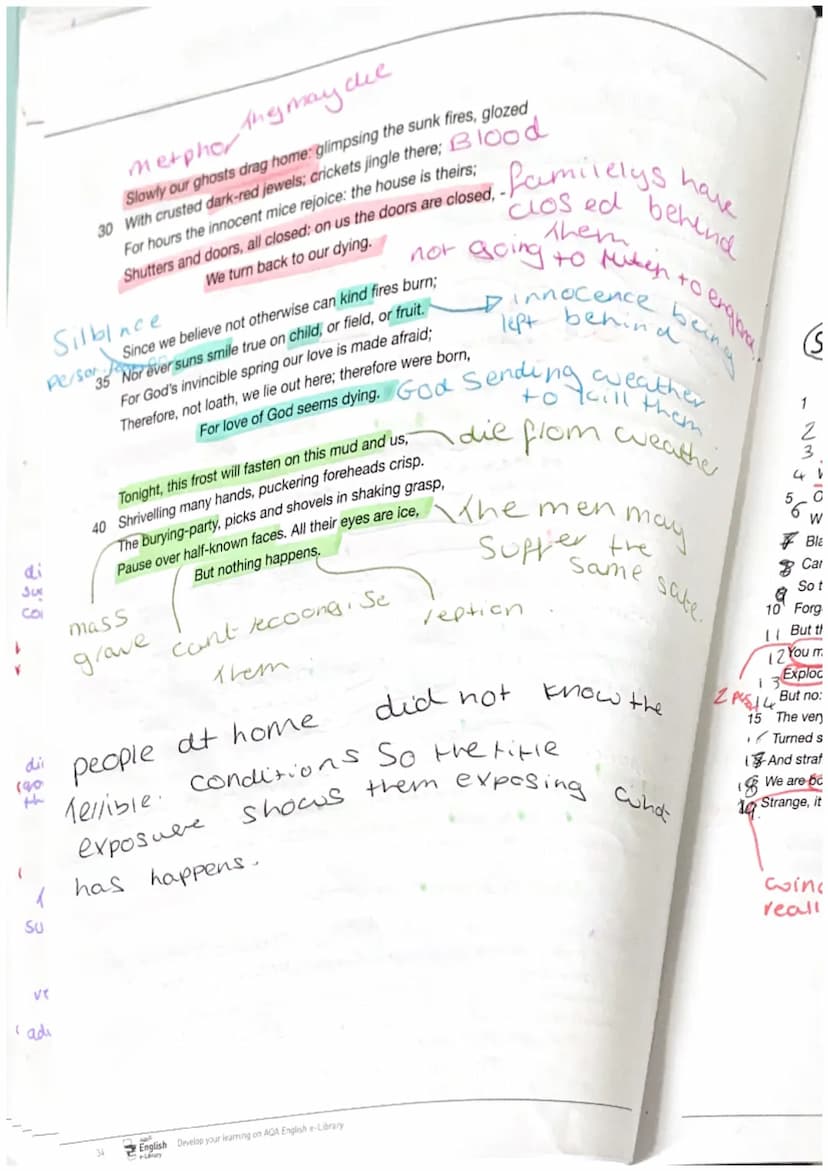 metpher they may die
Slowly our ghosts drag home: glimpsing the sunk fires, glozed
30 With crusted dark-red jewels; crickets jingle there; Blood
For hours the innocent mice rejoice: the house is theirs;
Shutters and doors, all closed: on us the doors are closed, -
We turn back to our dying.
familelys have
closed behind
them
not going to to england.
Silbince
Since we believe not otherwise can kind fires burn;
35 Nor ever suns smile true on child, or field, or fruit.
For God's invincible spring our love is made afraid;
Therefore, not loath, we lie out here; therefore were born,
For love of God seems dying.
innocence being
left behind
God sending weather
to kill them
Tonight, this frost will fasten on this mud and us,
40 Shrivelling many hands, puckering foreheads crisp.
The burying-party, picks and shovels in shaking grasp,
Pause over half-known faces. All their eyes are ice,
But nothing happens.
die from weather
The men may
suffer the
same sate.
mass
grave
cant recoongise
them
reption
people at home did not know the
terrible conditions so the title
exposure shows them exposing what
has happens.
34 English e-Library Develop your learning on AQA English e-Library
di
su
coi
dii
th
su
ve
adi
1
2
3
4
5
6 W
7 Bla
8 Car
9 So t
10 Forg
11 But th
12 You m
13 Exploc
14 But no:
15 The very
Turned s
And straf
18 We are
19 Strange, it
reall